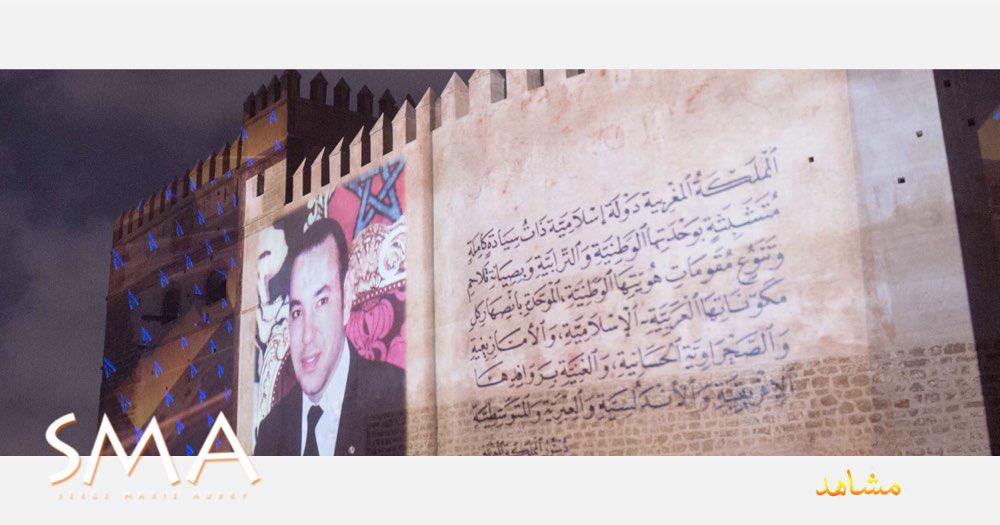 ٱلْمَمْلَكَةُ ٱلْمَغْرِبِيَّةُ دَوْلَةٌ إِسْلَامِيَّةٌ ذَاتُ سِيَادَةٍ كَامِلَةٍ
مُتَشَبِّثَةٌ بِوَحْدَتِهَا ٱلْوَطَنِيَّةِ وَٱلتُّرَابِيَّةِ وَبِصِيَانَةِ تَلَاحُمِ
وَتَنَوُّعِ مُقَوِّمَاتِ هُوِيَّتِهَا ٱلْوَطَنِيَّةِ، ٱلْمُوَحَّدَةِ بِٱنْصِهَارِ كُلِّ
مُكَوِّنَاتِهَا ٱلْعَرَبِيَّةِ - ٱلْإِسْلَامِيَّةِ، وَٱلْأَمَازِيغِيَّةِ
وَٱلصَّحْرَاوِيَّةِ ٱلْحَسَّانِيَّةِ، وَٱلْغَنِيَّةِ بِرَوَافِدِهَا
ٱلْإِفْرِيقِيَّةِ وَٱلْأَنْدَلُسِيَّةِ وَٱلْعِبْرِيَّةِ وَٱلْمُتَوَسِّطِيَّةِ
دستور المملكة المغربية
SMA
SERGE MARIE AUBRY
مشاهد